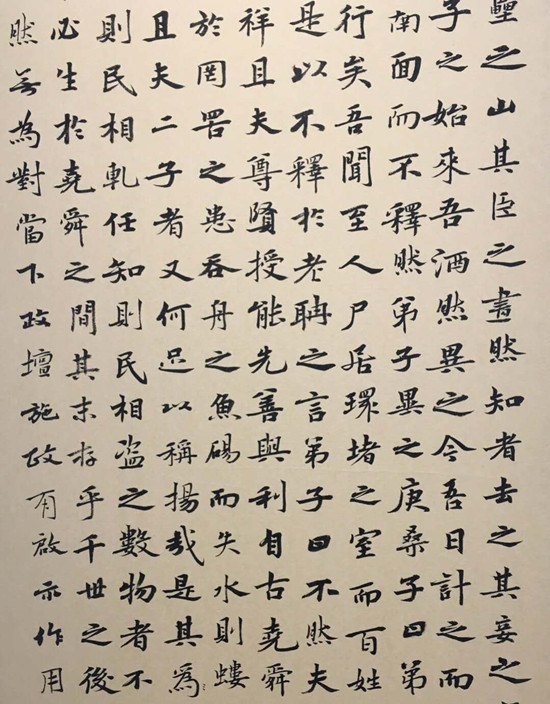 壘之山其臣之畫然知者去之其妾之
子之始來吾洒然異之今吾日計之而
南面而不釋然弟子異之庚桑子曰弟
行矣吾聞至人尸居環堵之室而百姓
是以不釋於老聃之言弟子曰不然夫
祥且夫尊賢授能先善與利自古堯舜
於罔罟之患吞舟之魚碭而失水則螻
且夫二子者又何足以稱揚哉是其為
則民相軋任知則民相盜之數物者不
必生於堯舜之間其末存乎千世之後
然為對當下政壇施政有啟示作用